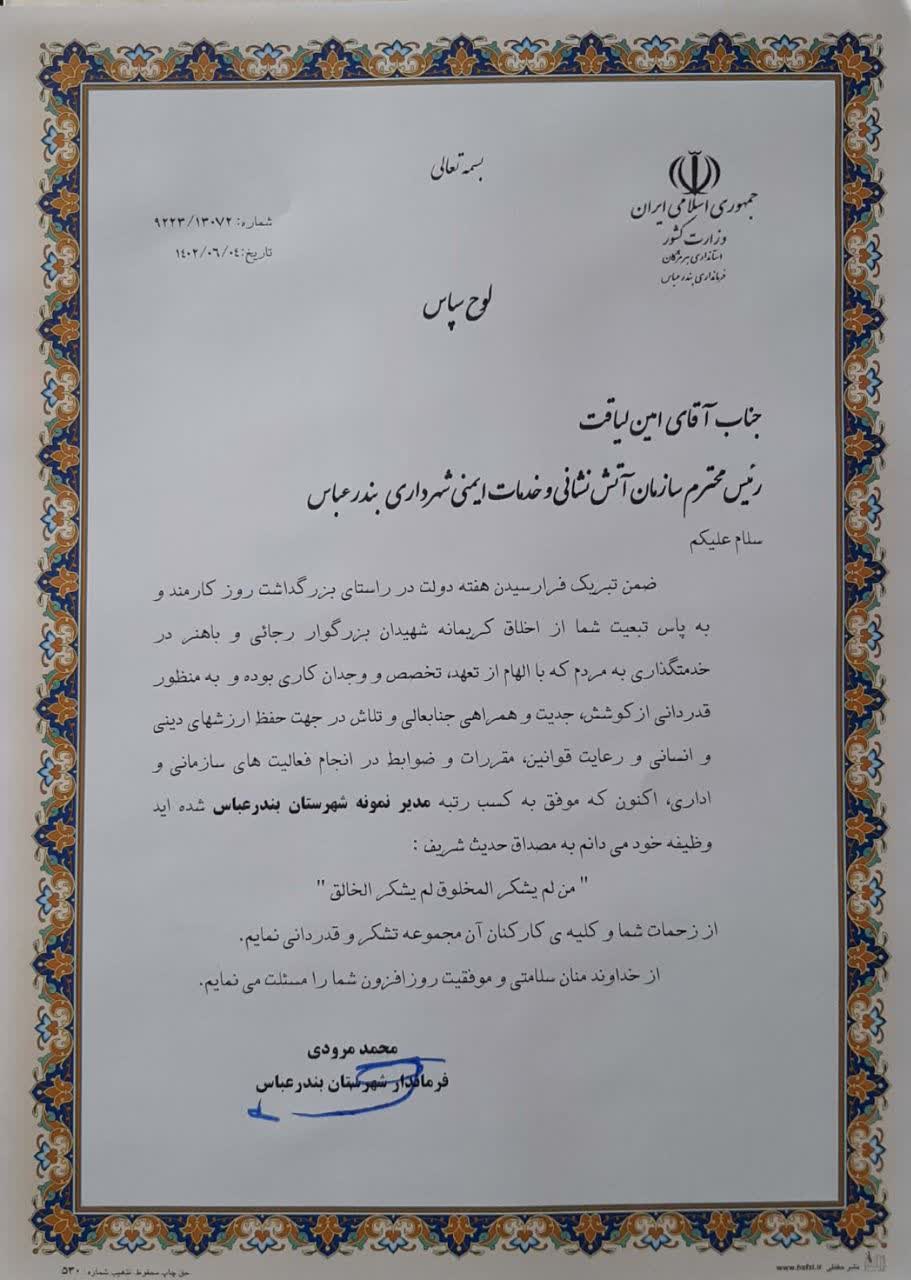 بسمه تعالی
جمهوری اسلامی ایران
وزارت کشور
استانداری هرمزگان
فرمانداری بندرعباس
شماره: ۹۲۲۳/۱۳۰۷۲
تاریخ: ۱۴۰۲/۰۶/۰۴
لوح سپاس
جناب آقای امین لیاقت
رئیس محترم سازمان آتش نشانی و خدمات ایمنی شهرداری بندرعباس
سلام علیکم
ضمن تبریک فرارسیدن هفته دولت در راستای بزرگداشت روز کارمند و
به پاس تبعیت شما از اخلاق کریمانه شهیدان بزرگوار رجائی و باهنر در
خدمتگذاری به مردم که با الهام از تعهد، تخصص و وجدان کاری بوده و به منظور
قدردانی از کوشش، جدیت و همراهی جنابعالی و تلاش در جهت حفظ ارزشهای دینی
و انسانی و رعایت قوانین، مقررات و ضوابط در انجام فعالیت های سازمانی و
اداری، اکنون که موفق به کسب رتبه مدیر نمونه شهرستان بندرعباس شده اید
وظیفه خود می دانم به مصداق حدیث شریف :
" من لم یشکر المخلوق لم یشکر الخالق "
از زحمات شما و کلیه ی کارکنان آن مجموعه تشکر و قدردانی نمایم.
از خداوند منان سلامتی و موفقیت روزافزون شما را مسئلت می نمایم.
محمد مرودی
فرماندار شهرستان بندرعباس
حق چاپ محفوظ. تذهیب شماره ۵۳۰
www.hafzi.ir